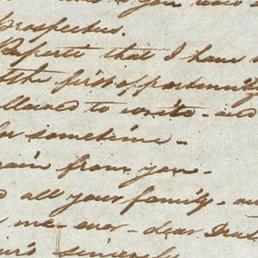 and you
Prospectus.
that I have
the first opportunity
allowed to write - and
for sometime -
again from you -
all your family - and
me - ever - dear
sincerely